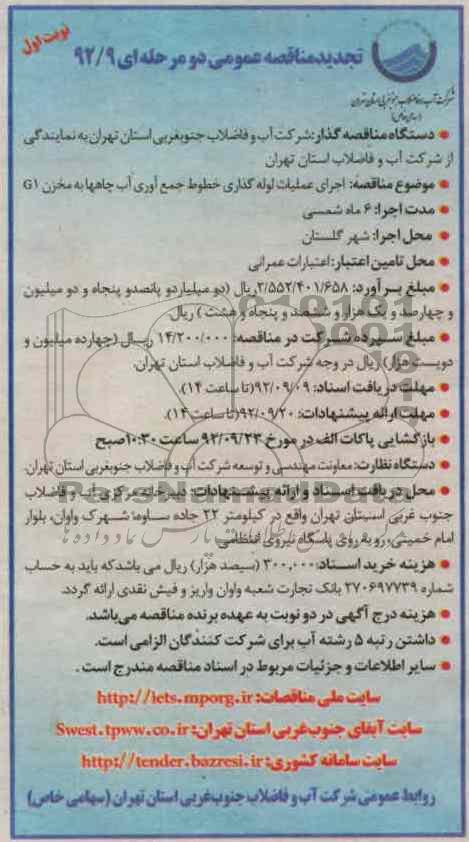 نوبت اول
تجدیدمناقصه عمومی دو مرحله ای ۹۲/۹
شرکت آب و فاضلاب جنوبغربی استان تهران
(سهامی خاص)
● دستگاه مناقصه گذار: شرکت آب و فاضلاب جنوبغربی استان تهران به نمایندگی
از شرکت آب و فاضلاب استان تهران
● موضوع مناقصه: اجرای عملیات لوله گذاری خطوط جمع آوری آب چاهها به مخزن G1
● مدت اجرا: ۶ ماه شمسی
● محل اجرا: شهر گلستان
● محل تامین اعتبار: اعتبارات عمرانی
● مبلغ برآورد: ۲/۵۵۲/۴۰۱/۶۵۸ ریال (دو میلیاردو پانصدو پنجاه و دو میلیون
و چهارصد و یک هزار و ششصد و پنجاه و هشت ) ریال
● مبلغ سپرده شرکت در مناقصه: ۱۴/۲۰۰/۰۰۰ ریال (چهارده میلیون و
دویست هزار) ریال در وجه شرکت آب و فاضلاب استان تهران.
● مهلت دریافت اسناد: ۹۲/۰۹/۰۹(تا ساعت ۱۴).
● مهلت ارائه پیشنهادات: ۹۲/۰۹/۲۰(تا ساعت ۱۴).
● بازگشایی پاکات الف در مورخ ۹۲/۰۹/۲۳ ساعت ۱۰:۳۰صبح
● دستگاه نظارت: معاونت مهندسی و توسعه شرکت آب و فاضلاب جنوبغربی استان تهران.
● محل دریافت اسناد و ارائه پیشنهادات: دبیرخانه مرکزی آب و فاضلاب
جنوب غربی استان تهران واقع در کیلومتر ۲۲ جاده ساوه، شهرک واوان، بلوار
امام خمینی، رو به روی پاسگاه نیروی انتظامی
● هزینه خرید اسناد: ۳۰۰,۰۰۰ (سیصد هزار) ریال می باشدکه باید به حساب
شماره ۲۷۰۶۹۷۷۳۹ بانک تجارت شعبه واوان واریز و فیش نقدی ارائه گردد.
● هزینه درج آگهی در دو نوبت به عهده برنده مناقصه می‌باشد.
● داشتن رتبه ۵ رشته آب برای شرکت کنندگان الزامی است.
● سایر اطلاعات و جزئیات مربوط در اسناد مناقصه مندرج است .
سایت ملی مناقصات: http://iets.mporg.ir
سایت آبفای جنوب‌غربی استان تهران: Swest.tpww.co.ir
سایت سامانه کشوری: http://tender.bazresi.ir
روابط عمومی شرکت آب و فاضلاب جنوب‌غربی استان تهران (سهامی خاص)